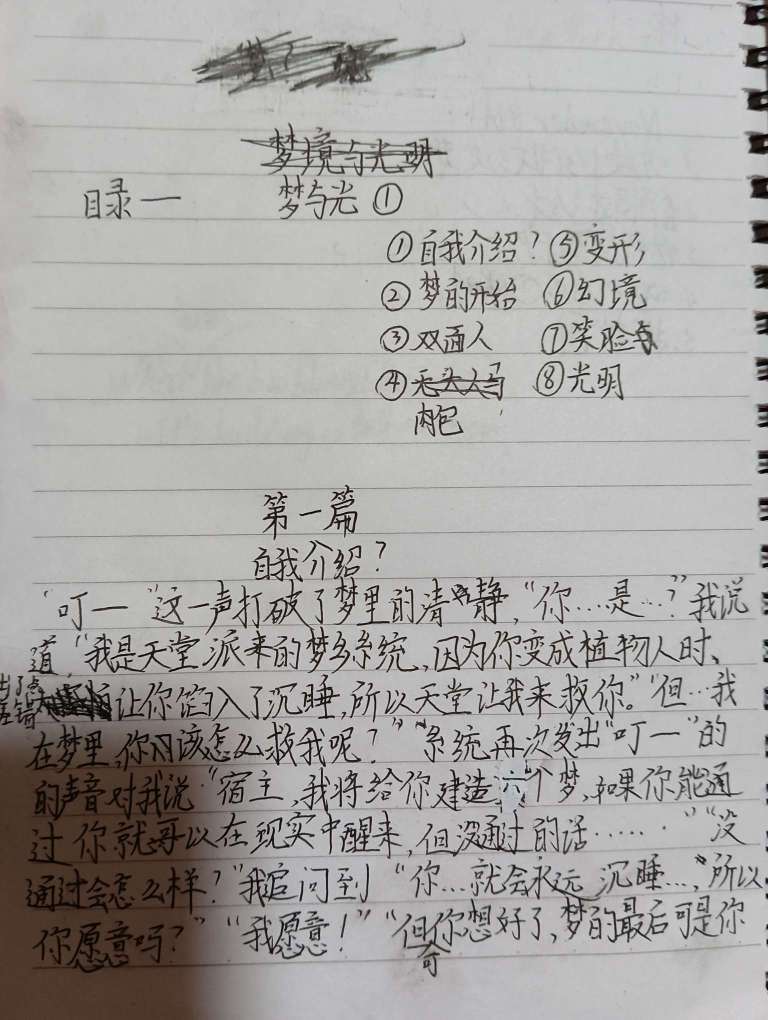 梦境与光明
目录一 梦与光①
①自我介绍？⑤变形
②梦的开始 ⑥幻境
③双面人 ⑦笑脸
④无头人马 ⑧光明
肉包
第一篇
自我介绍？
“叮一”这一声打破了梦里的清静，“你…是…？”我说
道，“我是天堂派来的梦乡系统，因为你变成植物人时、
出了点差错让你馅入了沉睡，所以天堂让我来救你。”“但…我
在梦里，你应该怎么救我呢？”“系统再次发出“叮一”的
的声音对我说“宿主，我将给你建造六个梦，如果你能通
过你就可以在现实中醒来，但没通过的话……”“没
通过会怎么样？”我追问到“你…就会永远沉睡…，”所以
你愿意吗？”“我愿意！”“但你可想好了，梦的最后可是你